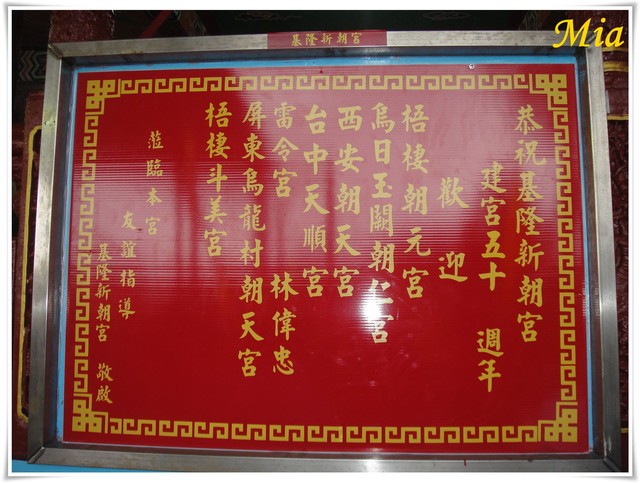 基隆新朝宮
Mia
恭祝基隆新朝宮
建宮五十 週年
歡迎
梧棲朝元宮
烏日玉闕朝仁宮
西安朝天宮
台中天順宮
雷令宮 林偉忠
屏東烏龍村朝天宮
梧棲斗美宮
蒞臨本宮
友誼指導
基隆新朝宮 敬啟